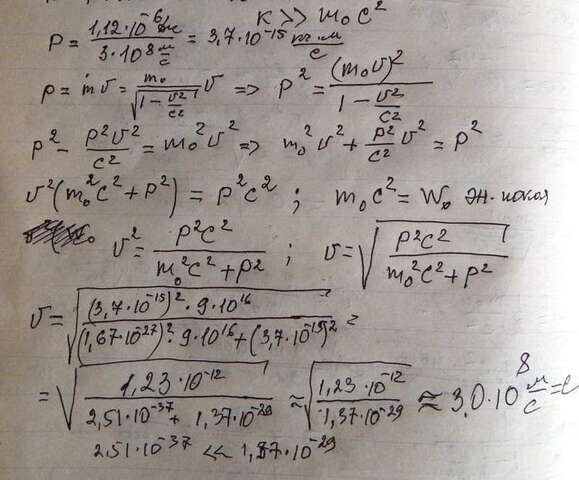 K >> m₀c²
P = 1,12·10⁻⁶ Дж / 3·10⁸ м/с = 3,7·10⁻¹⁵ кг·м/с
p = mv = m₀/√(1 - v²/c²) v => P² = (m₀v)²/(1 - v²/c²)
P² - P²v²/c² = m₀²v² => m₀²v² + P²/c² v² = P²
v²(m₀²c² + P²) = P²c² ; m₀c² = W₀ эн. покоя
v² = P²c²/(m₀²c² + P²) ; v = √(P²c²/(m₀²c² + P²))
v = √((3,7·10⁻¹⁵)²·9·10¹⁶/((1,67·10⁻²⁷)²·9·10¹⁶ + (3,7·10⁻¹⁵)²)) =
= √(1,23·10⁻¹²/(2,51·10⁻³⁷ + 1,37·10⁻²⁹)) ≈ √(1,23·10⁻¹²/1,37·10⁻²⁹) ≈ 3,0·10⁸ м/с = c
2,51·10⁻³⁷ << 1,37·10⁻²⁹